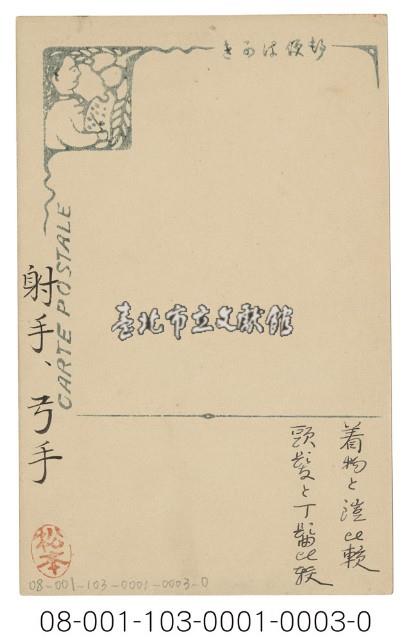 きがは便郵
CARTE POSTALE
臺北市立文獻館
射手、弓手
着物と鎧比較
頭髪と丁髷比較
松本
08-001-103-0001-0003-0
08-001-103-0001-0003-0